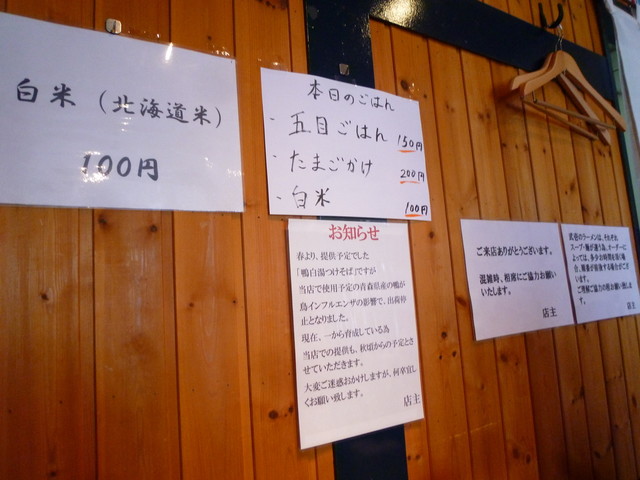 白米（北海道米）
100円
本日のごはん
・五目ごはん 150円
・たまごかけ 200円
・白米 100円
お知らせ
春より、提供予定でした
「鴨白湯つけそば」ですが
当店で使用予定の青森県産の鴨が
鳥インフルエンザの影響で、出荷停
止となりました。
現在、一から育成している為
当店での提供も、秋頃からの予定とさ
せていただきます。
大変ご迷惑おかけしますが、何卒宜し
くお願い致します。
店主
ご来店ありがとうございます。
混雑時、相席にご協力お願い
いたします。
店主
スープ・麺が違う為、オーダーに
よっては、多少お時間を頂く場
合、順番が前後する場合がござ
います。
ご理解ご協力の程お願い致しま
す。
店主